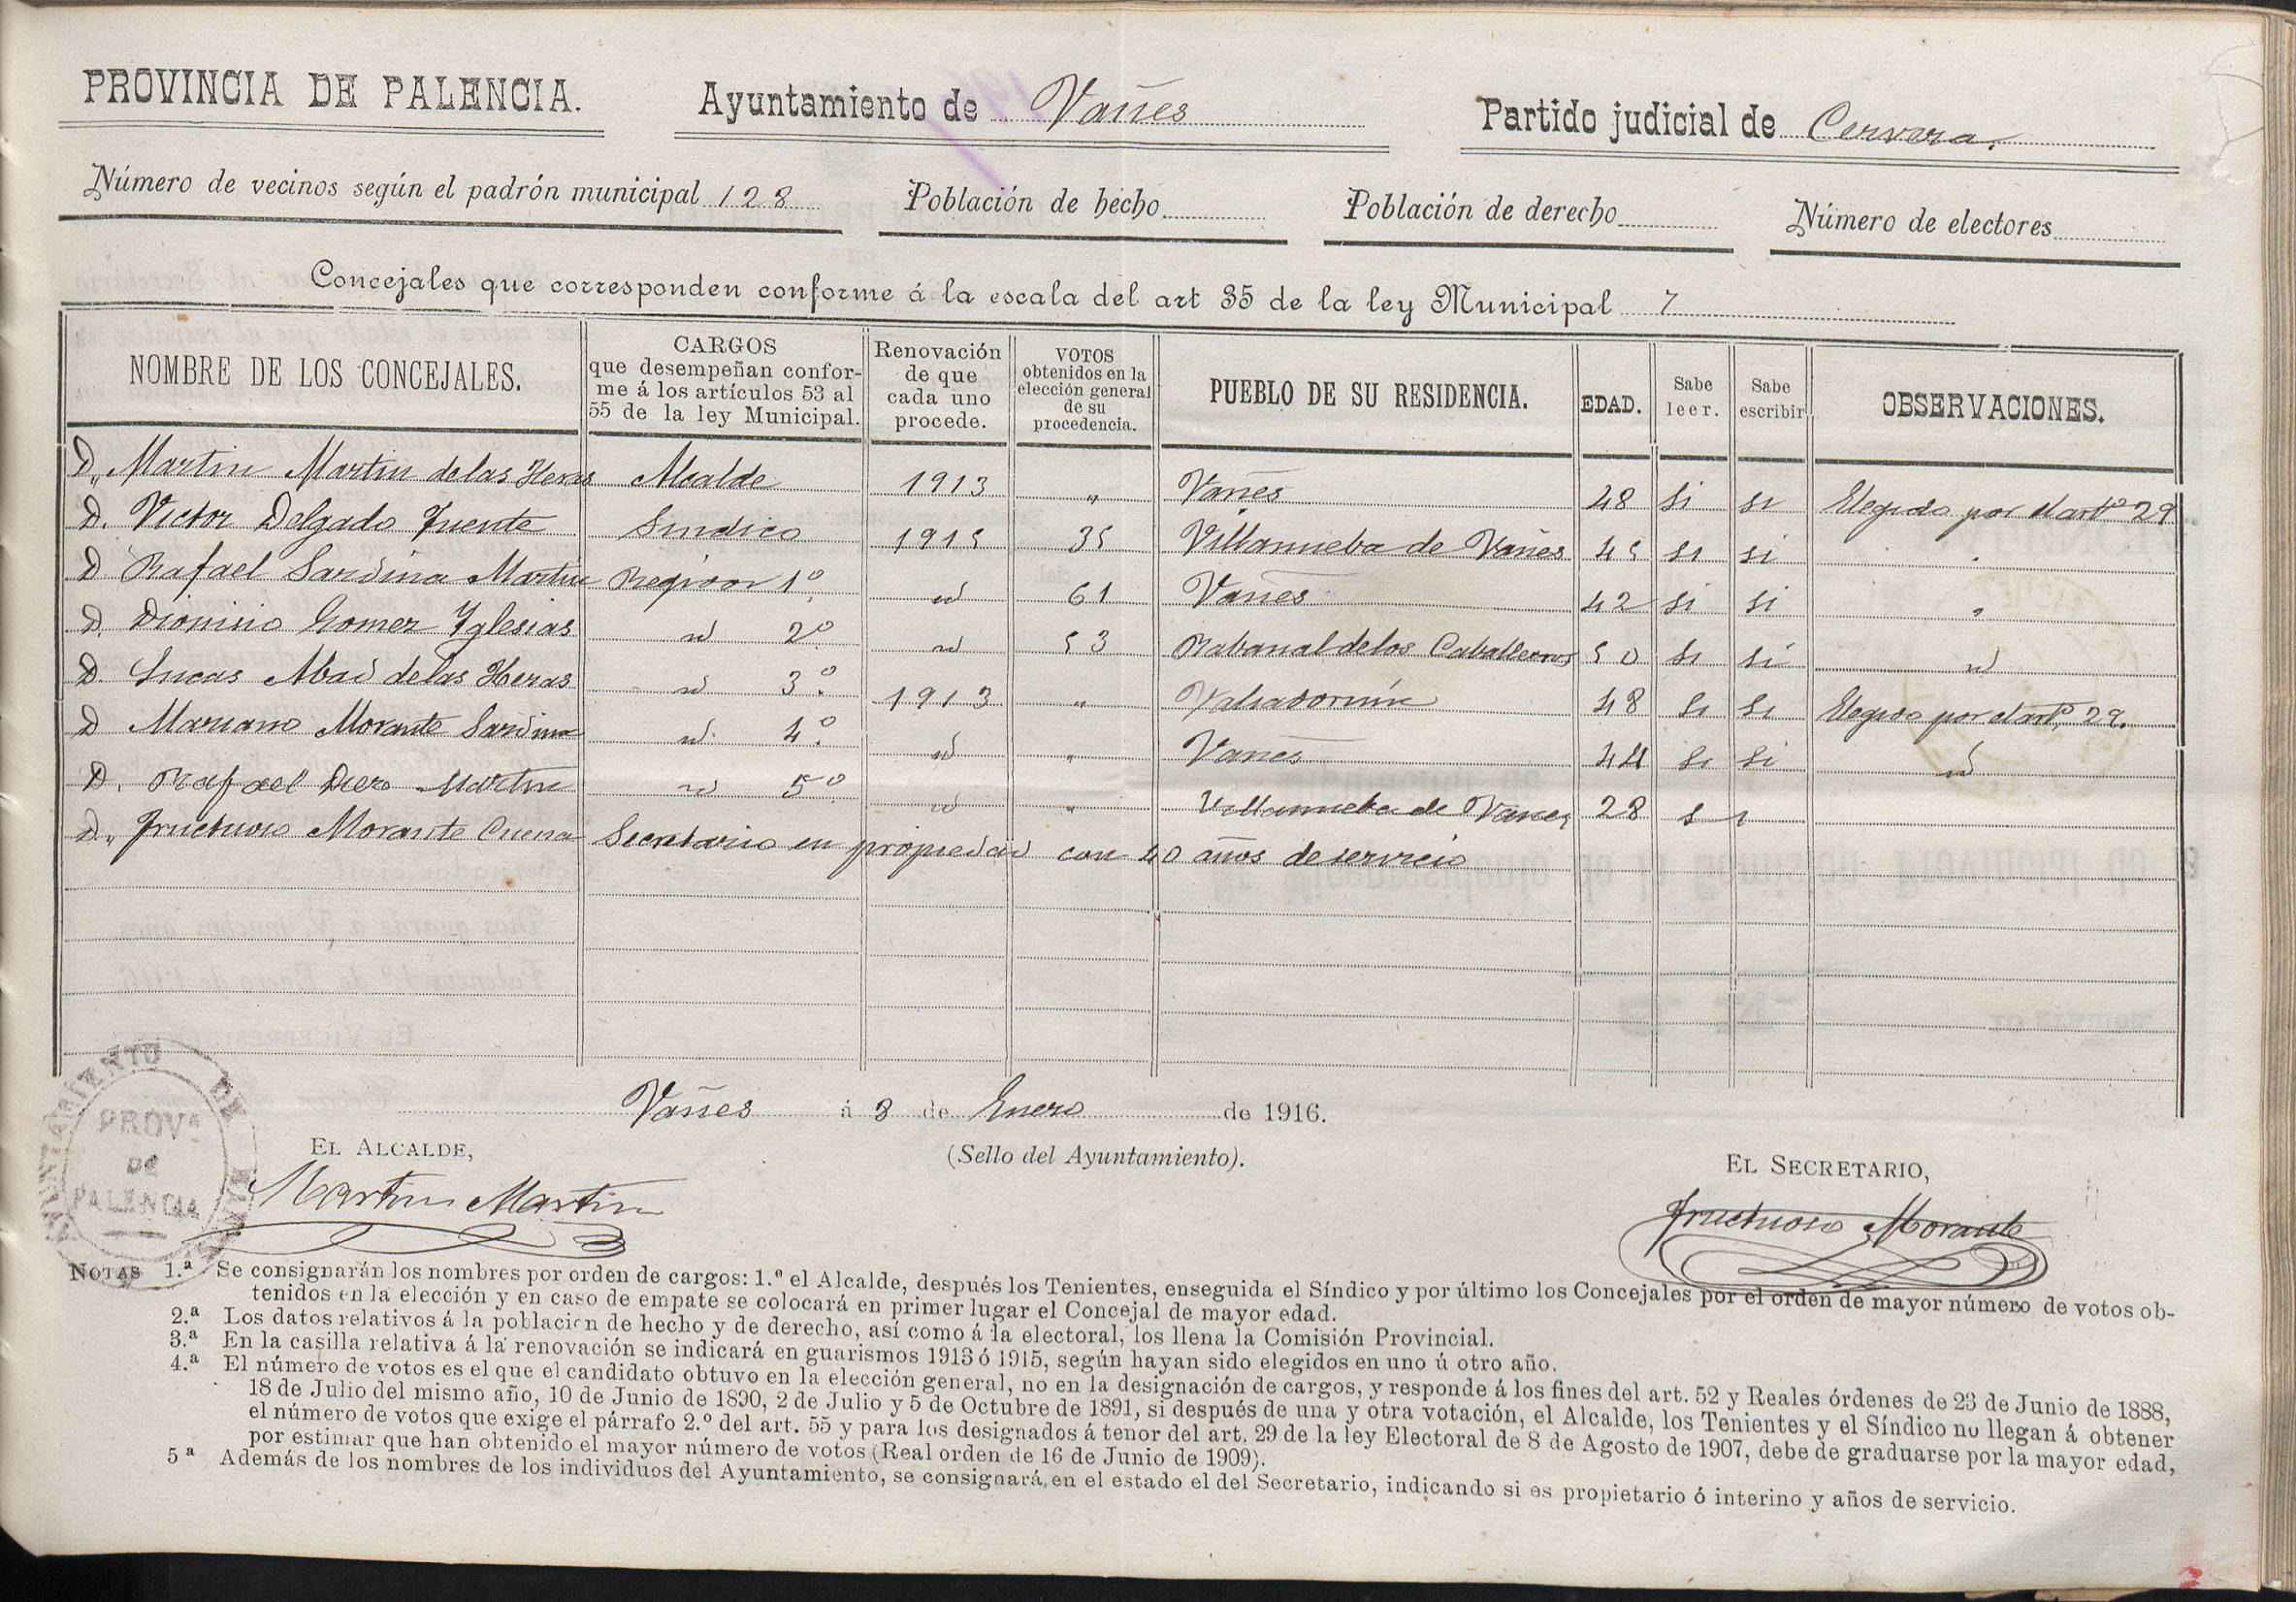 PROVINCIA DE PALENCIA. Ayuntamiento de Vañes Partido judicial de Cervera.
Número de vecinos según el padrón municipal 128 Población de hecho Población de derecho Número de electores
Concejales que corresponden conforme á la escala del art 35 de la ley Municipal 7
NOMBRE DE LOS CONCEJALES. CARGOS que desempeñan confor- me á los artículos 53 al 55 de la ley Municipal. Renovación de que cada uno procede. VOTOS obtenidos en la elección general de su procedencia. PUEBLO DE SU RESIDENCIA. EDAD. Sabe leer. Sabe escribir OBSERVACIONES.
D. Martin Martin de las Heras Alcalde 1913 " Vañes 48 si si Elegido por el artº 29
D. Victor Delgado Fuente Sindico 1915 35 Villanueba de Vañes 45 si si "
D Rafael Sardina Martin Regidor 1º id 61 Vañes 42 si si "
D. Dionisio Gomez Yglesias id 2º id 53 Rabanal de los Caballeros 50 si si id
D. Lucas Abad de las Heras id 3º. 1913 " Valsadornin 48 si si Elegido por el artº 29.
D Mariano Morante Sardina id. 4º. id " Vañes 44 si si id
D. Rafael Diez Martin id 5º id " Villanueba de Vañes 28 si
D. Fructuoso Morante Cuena Secretario en propiedad con 40 años de servicio
Vañes á 3 de Enero de 1916.
EL ALCALDE, (Sello del Ayuntamiento). EL SECRETARIO,
AYUNTAMIENTO DE VAÑES
PROVª
DE
PALENCIA
Martin Martin Fructuoso Morante
NOTAS 1.ª Se consignarán los nombres por orden de cargos: 1.º el Alcalde, después los Tenientes, enseguida el Síndico y por último los Concejales por el orden de mayor número de votos ob-
tenidos en la elección y en caso de empate se colocará en primer lugar el Concejal de mayor edad.
2.ª Los datos relativos á la población de hecho y de derecho, así como á la electoral, los llena la Comisión Provincial.
3.ª En la casilla relativa á la renovación se indicará en guarismos 1913 ó 1915, según hayan sido elegidos en uno ú otro año.
4.ª El número de votos es el que el candidato obtuvo en la elección general, no en la designación de cargos, y responde á los fines del art. 52 y Reales órdenes de 23 de Junio de 1888,
18 de Julio del mismo año, 10 de Junio de 1890, 2 de Julio y 5 de Octubre de 1891, si después de una y otra votación, el Alcalde, los Tenientes y el Síndico no llegan á obtener
el número de votos que exige el párrafo 2.º del art. 55 y para los designados á tenor del art. 29 de la ley Electoral de 8 de Agosto de 1907, debe de graduarse por la mayor edad,
por estimar que han obtenido el mayor número de votos (Real orden de 16 de Junio de 1909).
5ª Además de los nombres de los individuos del Ayuntamiento, se consignará, en el estado el del Secretario, indicando si es propietario ó interino y años de servicio.